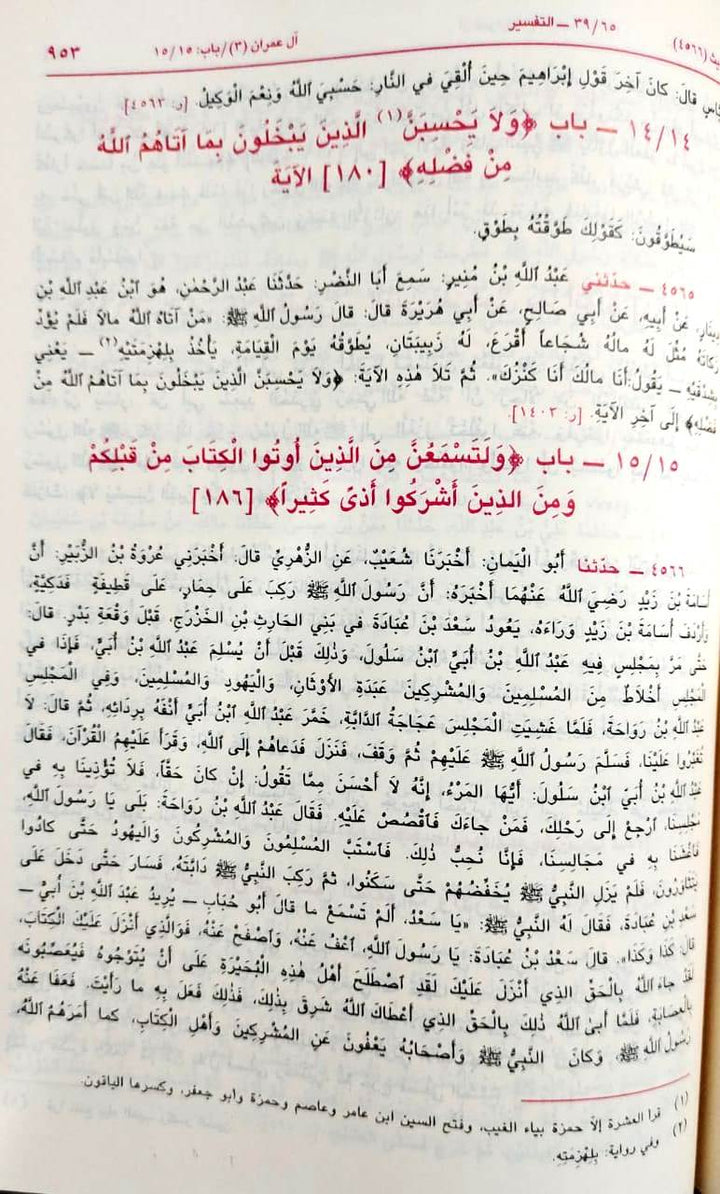 يث (٤٥٦٦) ٣٩/٦٥ ــ التفسير آل عمران (٣)/باب: ١٥/١٥ ٩٥٣
قالَ: كانَ آخِرَ قَوْلِ إِبْرَاهِيمَ حِينَ أُلْقِيَ في النَّارِ: حَسْبِيَ اللهُ وَنِعْمَ الْوَكِيلُ. [ر: ٤٥٦٣].
١٤/١٤ ــ باب ﴿وَلَا يَحْسِبَنَّ(١) الَّذِينَ يَبْخَلُونَ بِمَا آتَاهُمُ اللهُ
مِنْ فَضْلِهِ﴾ [١٨٠] الآيَةَ
سَيُطَوَّقُونَ: كَقَوْلِكَ طَوَّقْتُهُ بِطَوْقٍ.
٤٥٦٥ ــ حدّثني عَبْدُ اللهِ بْنُ مُنِيرٍ: سَمِعَ أَبَا النَّضْرِ: حَدَّثَنَا عَبْدُ الرَّحْمٰنِ، هُوَ ابْنُ عَبْدِ اللهِ بْنِ
دِينَارٍ، عَنْ أَبِيهِ، عَنْ أَبِي صَالِحٍ، عَنْ أَبِي هُرَيْرَةَ قالَ: قالَ رَسُولُ اللهِ ﷺ: «مَنْ آتَاهُ اللهُ مالاً فَلَمْ يُؤَدِّ
زَكاتَهُ مُثِّلَ لَهُ مالُهُ شُجَاعاً أَقْرَعَ، لَهُ زَبِيبَتَانِ، يُطَوَّقُهُ يَوْمَ الْقِيَامَةِ، يَأْخُذُ بِلِهْزِمَتَيْهِ(٢) ــ يَعْنِي
بِشِدْقَيْهِ ــ يَقُولُ: أَنَا مالُكَ أَنَا كَنْزُكَ». ثُمَّ تَلَا هٰذِهِ الآيَةَ: ﴿وَلَا يَحْسِبَنَّ الَّذِينَ يَبْخَلُونَ بِمَا آتَاهُمُ اللهُ مِنْ
فَضْلِهِ﴾ إِلَى آخِرِ الآيَةِ. [ر: ١٤٠٣].
١٥/١٥ ــ باب ﴿وَلَتَسْمَعُنَّ مِنَ الَّذِينَ أُوتُوا الْكِتَابَ مِنْ قَبْلِكُمْ
وَمِنَ الذينَ أَشْرَكُوا أَذىً كَثِيراً﴾ [١٨٦]
٤٥٦٦ ــ حدّثنا أَبُو الْيَمَانِ: أَخْبَرَنَا شُعَيْبٌ، عَنِ الزُّهْرِيِّ قالَ: أَخْبَرَنِي عُرْوَةُ بْنُ الزُّبَيْرِ: أَنَّ
أُسَامَةَ بْنَ زَيْدٍ رَضِيَ اللهُ عَنْهُمَا أَخْبَرَهُ: أَنَّ رَسُولَ اللهِ ﷺ رَكِبَ عَلَى حِمَارٍ، عَلَى قَطِيفَةٍ فَدَكِيَّةٍ،
وَأَرْدَفَ أُسَامَةَ بْنَ زَيْدٍ وَرَاءَهُ، يَعُودُ سَعْدَ بْنَ عُبَادَةَ في بَنِي الحَارِثِ بْنِ الخَزْرَجِ، قَبْلَ وَقْعَةِ بَدْرٍ. قالَ:
حَتَّى مَرَّ بِمَجْلِسٍ فِيهِ عَبْدُ اللهِ بْنُ أُبَيٍّ ابْنُ سَلُولَ، وَذٰلِكَ قَبْلَ أَنْ يُسْلِمَ عَبْدُ اللهِ بْنُ أُبَيٍّ، فَإِذَا في
المَجْلِسِ أَخْلَاطٌ مِنَ المُسْلِمِينَ وَالمُشْرِكِينَ عَبَدَةِ الأَوْثَانِ، وَالْيَهُودِ وَالمُسْلِمِينَ، وَفي الْمَجْلِسِ
عَبْدُ اللهِ بْنُ رَوَاحَةَ، فَلَمَّا غَشِيَتِ الْمَجْلِسَ عَجَاجَةُ الدَّابَّةِ، خَمَّرَ عَبْدُ اللهِ ابْنُ أُبَيٍّ أَنْفَهُ بِرِدَائِهِ، ثُمَّ قالَ: لَا
تُغَبِّرُوا عَلَيْنَا، فَسَلَّمَ رَسُولُ اللهِ ﷺ عَلَيْهِمْ ثُمَّ وَقَفَ، فَنَزَلَ فَدَعاهُمْ إِلَى اللهِ، وَقَرَأَ عَلَيْهِمُ الْقُرْآنَ، فَقَالَ
عَبْدُ اللهِ بْنُ أُبَيٍّ ابْنُ سَلُولَ: أَيُّهَا المَرْءُ، إِنَّهُ لَا أَحْسَنَ مِمَّا تَقُولُ: إِنْ كانَ حَقّاً، فَلَا تُؤْذِينَا بِهِ في
مَجْلِسِنَا، ارْجِعْ إِلَى رَحْلِكَ، فَمَنْ جاءَكَ فَاقْصُصْ عَلَيْهِ. فَقَالَ عَبْدُ اللهِ بْنُ رَوَاحَةَ: بَلَى يَا رَسُولَ اللهِ،
فَاغْشَنَا بِهِ في مَجَالِسِنَا، فَإِنَّا نُحِبُّ ذٰلِكَ. فَاسْتَبَّ المُسْلِمُونَ وَالمُشْرِكُونَ وَالْيَهُودُ حَتَّى كادُوا
يَتَثَاوَرُونَ، فَلَمْ يَزَلِ النَّبِيُّ ﷺ يُخَفِّضُهُمْ حَتَّى سَكَنُوا، ثمَّ رَكِبَ النَّبِيُّ ﷺ دَابَّتَهُ، فَسَارَ حَتَّى دَخَلَ عَلَى
سَعْدِ بْنِ عُبَادَةَ، فَقَالَ لَهُ النَّبِيُّ ﷺ: «يَا سَعْدُ، أَلَمْ تَسْمَعْ ما قالَ أَبُو حُبَابٍ ــ يُرِيدُ عَبْدَ اللهِ بْنَ أُبَيٍّ ــ
قالَ: كَذَا وَكَذَا». قالَ سَعْدُ بْنُ عُبَادَةَ: يَا رَسُولَ اللهِ، اعْفُ عَنْهُ، وَاصْفَحْ عَنْهُ، فَوَالَّذِي أَنْزَلَ عَلَيْكَ الْكِتَابَ،
لَقَدْ جاءَ اللهُ بِالْحَقِّ الذِي أَنْزَلَ عَلَيْكَ لَقَدِ اصْطَلَحَ أَهْلُ هٰذِهِ الْبُحَيْرَةِ عَلَى أَنْ يُتَوِّجُوهُ فَيُعَصِّبُونَهُ
بِالْعِصَابَةِ، فَلَمَّا أَبىٰ اللهُ ذٰلِكَ بِالْحَقِّ الذِي أَعْطَاكَ اللهُ شَرِقَ بِذٰلِكَ، فَذٰلِكَ فَعَلَ بِهِ ما رَأَيْتَ. فَعَفَا عَنْهُ
رَسُولُ اللهِ ﷺ، وَكانَ النَّبِيُّ ﷺ وَأَصْحَابُهُ يَعْفُونَ عَنِ المُشْرِكِينَ وَأَهْلِ الْكِتَابِ، كما أَمَرَهُمُ اللهُ،
(١) قرأ العشرة إلّا حمزة بياء الغيب، وفتح السين ابن عامر وعاصم وحمزة وأبو جعفر، وكسرها الباقون.
(٢) وفي رواية: بِلِهْزِمَتِهِ.